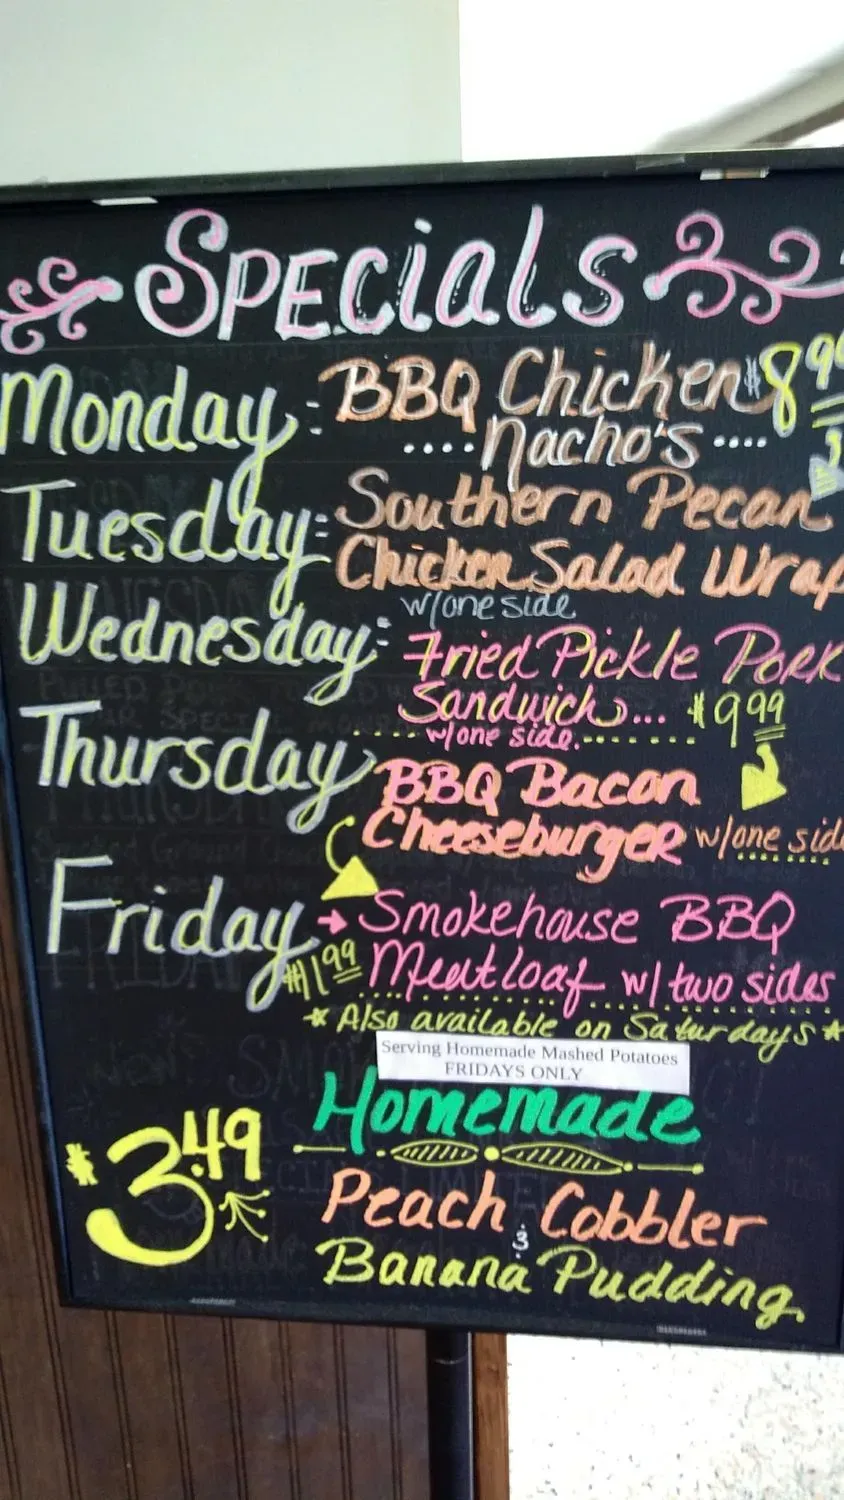 Specials
Monday: BBQ Chicken $8.99
....Nacho's....
Tuesday: Southern Pecan
Chicken Salad Wrap
w/one side
Wednesday: Fried Pickle Pork
Sandwich... $9.99
w/one side.
Thursday BBQ Bacon
Cheeseburger w/one side
Friday → Smokehouse BBQ
$11.99 Meatloaf w/two sides
* Also available on Saturdays *
Serving Homemade Mashed Potatoes
FRIDAYS ONLY
Homemade
$3.49
Peach Cobbler
&
Banana Pudding